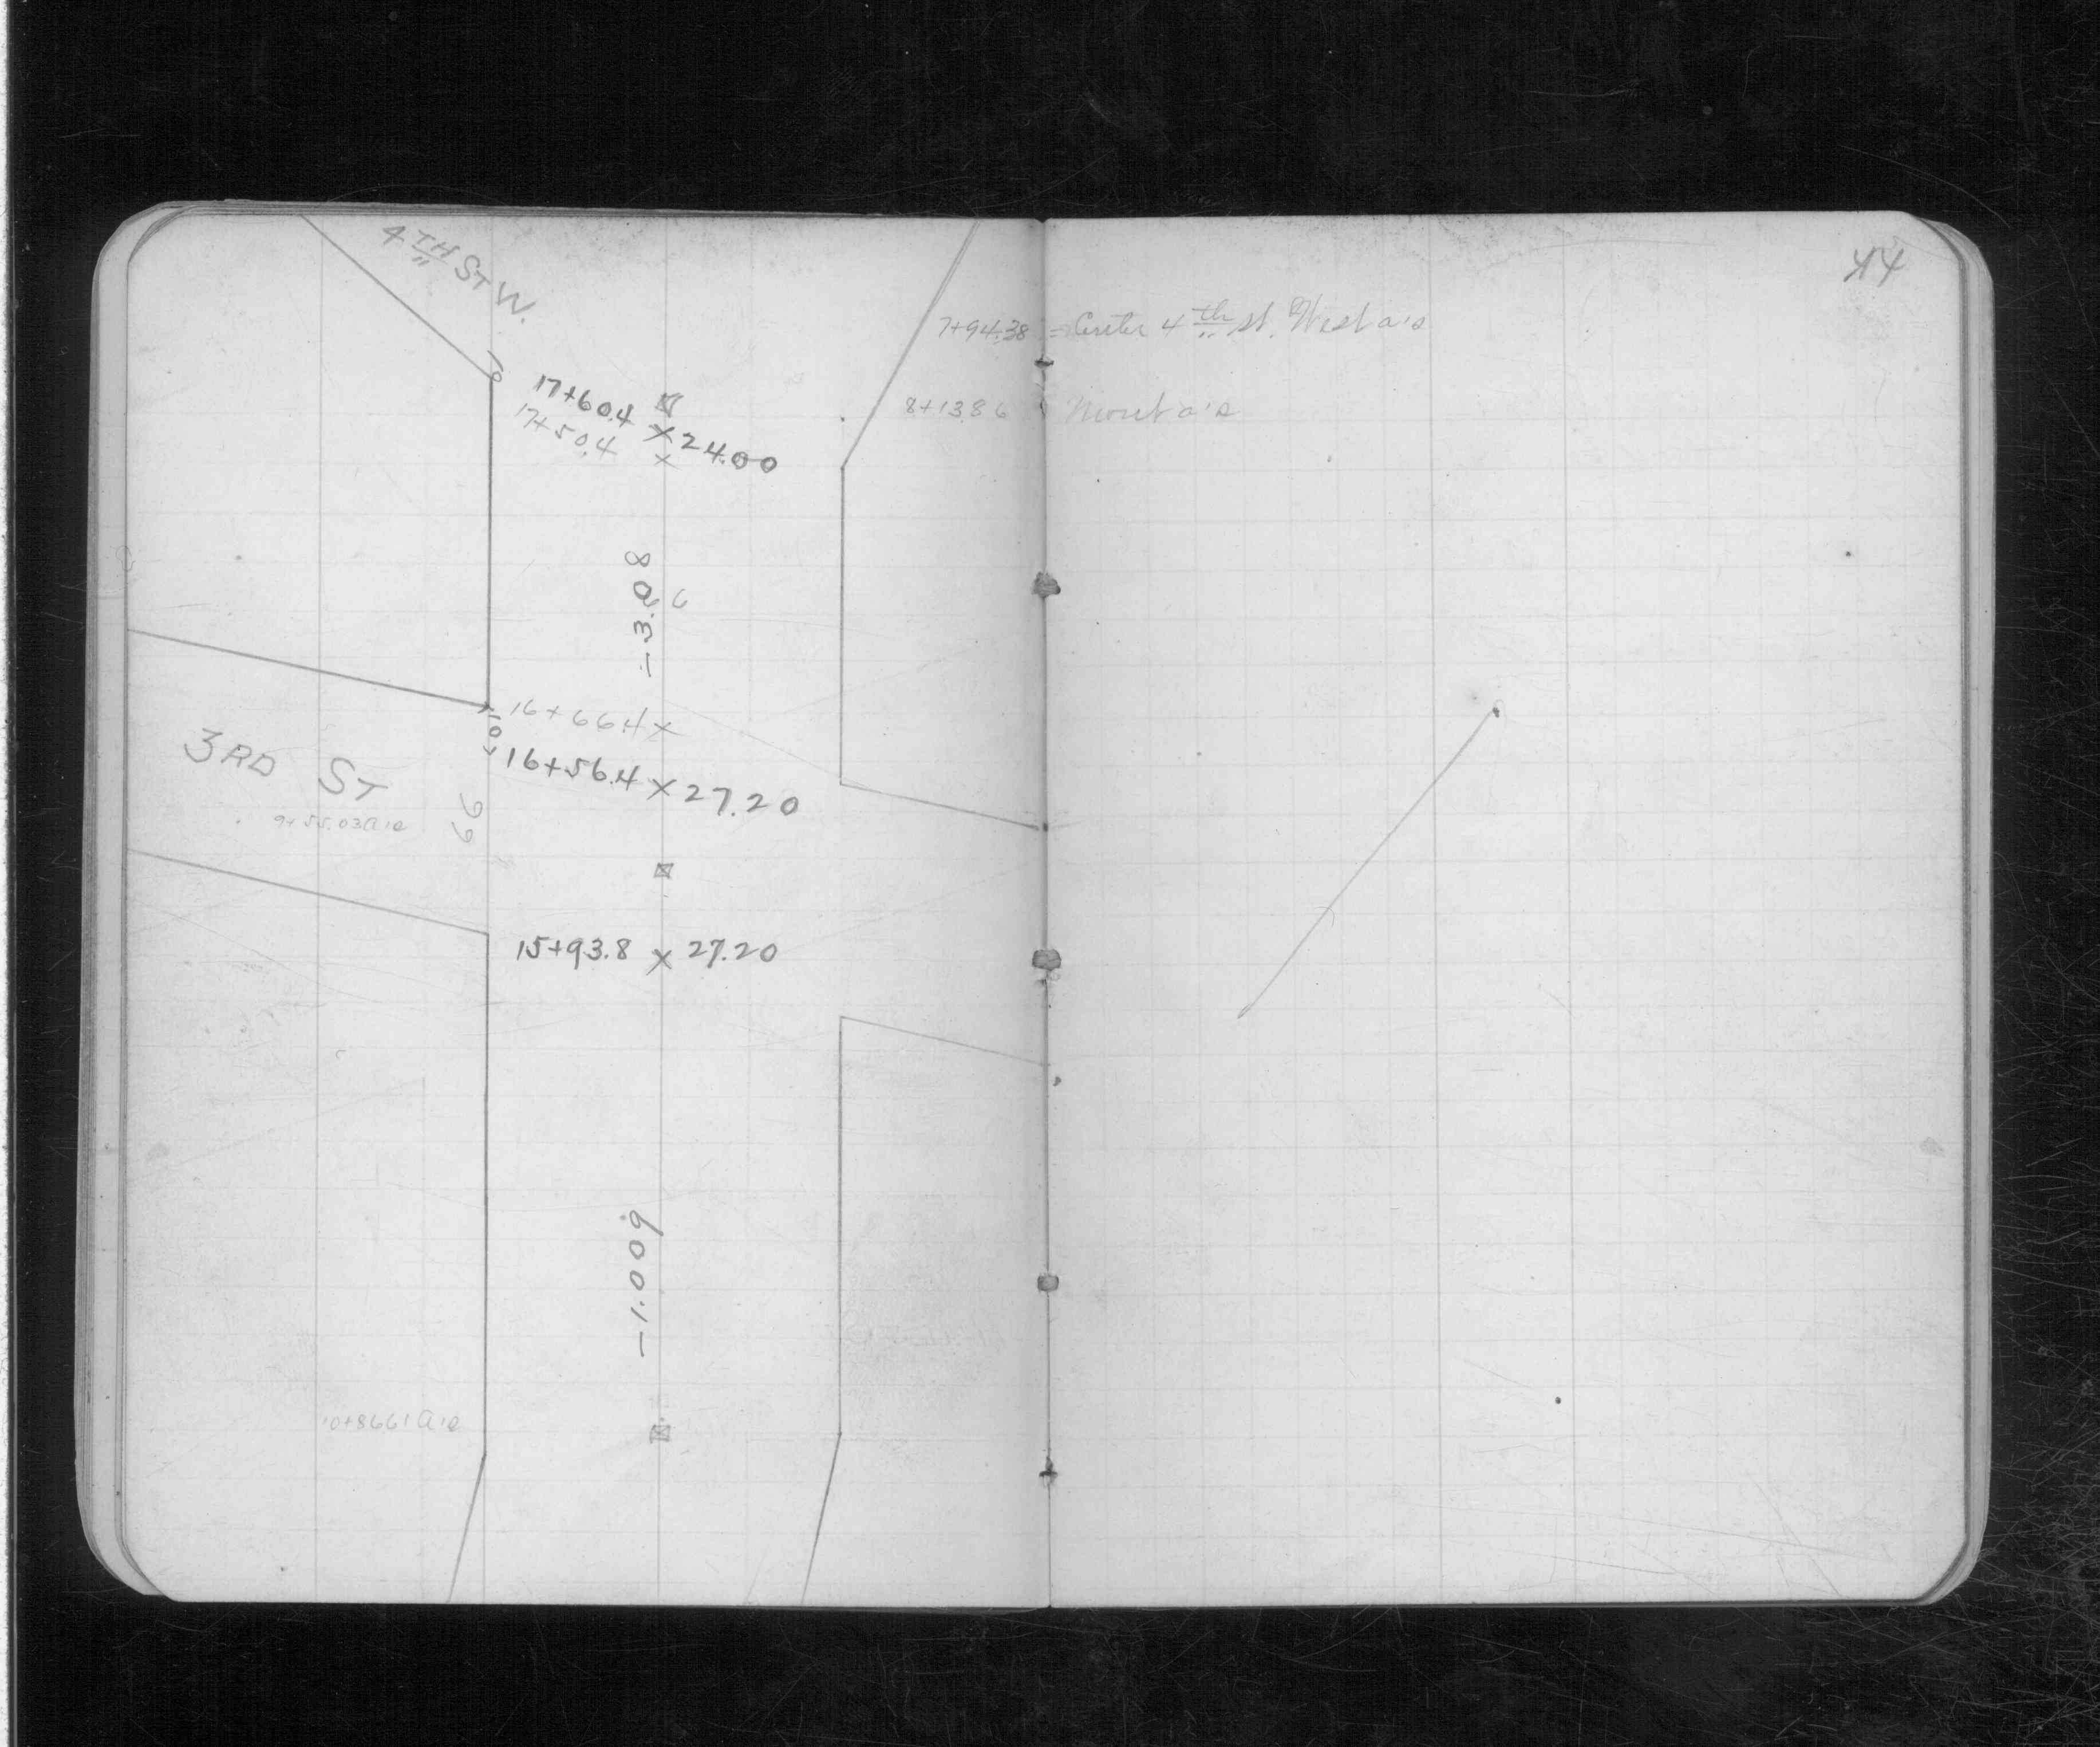 4TH ST W.
17+60.4 × 24.00
17+50.4 ×
-3.08
6
16+66.4 ×
10
16+56.4 × 27.20
3RD ST
9+55.03 a's
66
15+93.8 × 27.20
-1.009
10+86.61 a's
44
7+94.38 = Center 4th St. West a's
8+13.86